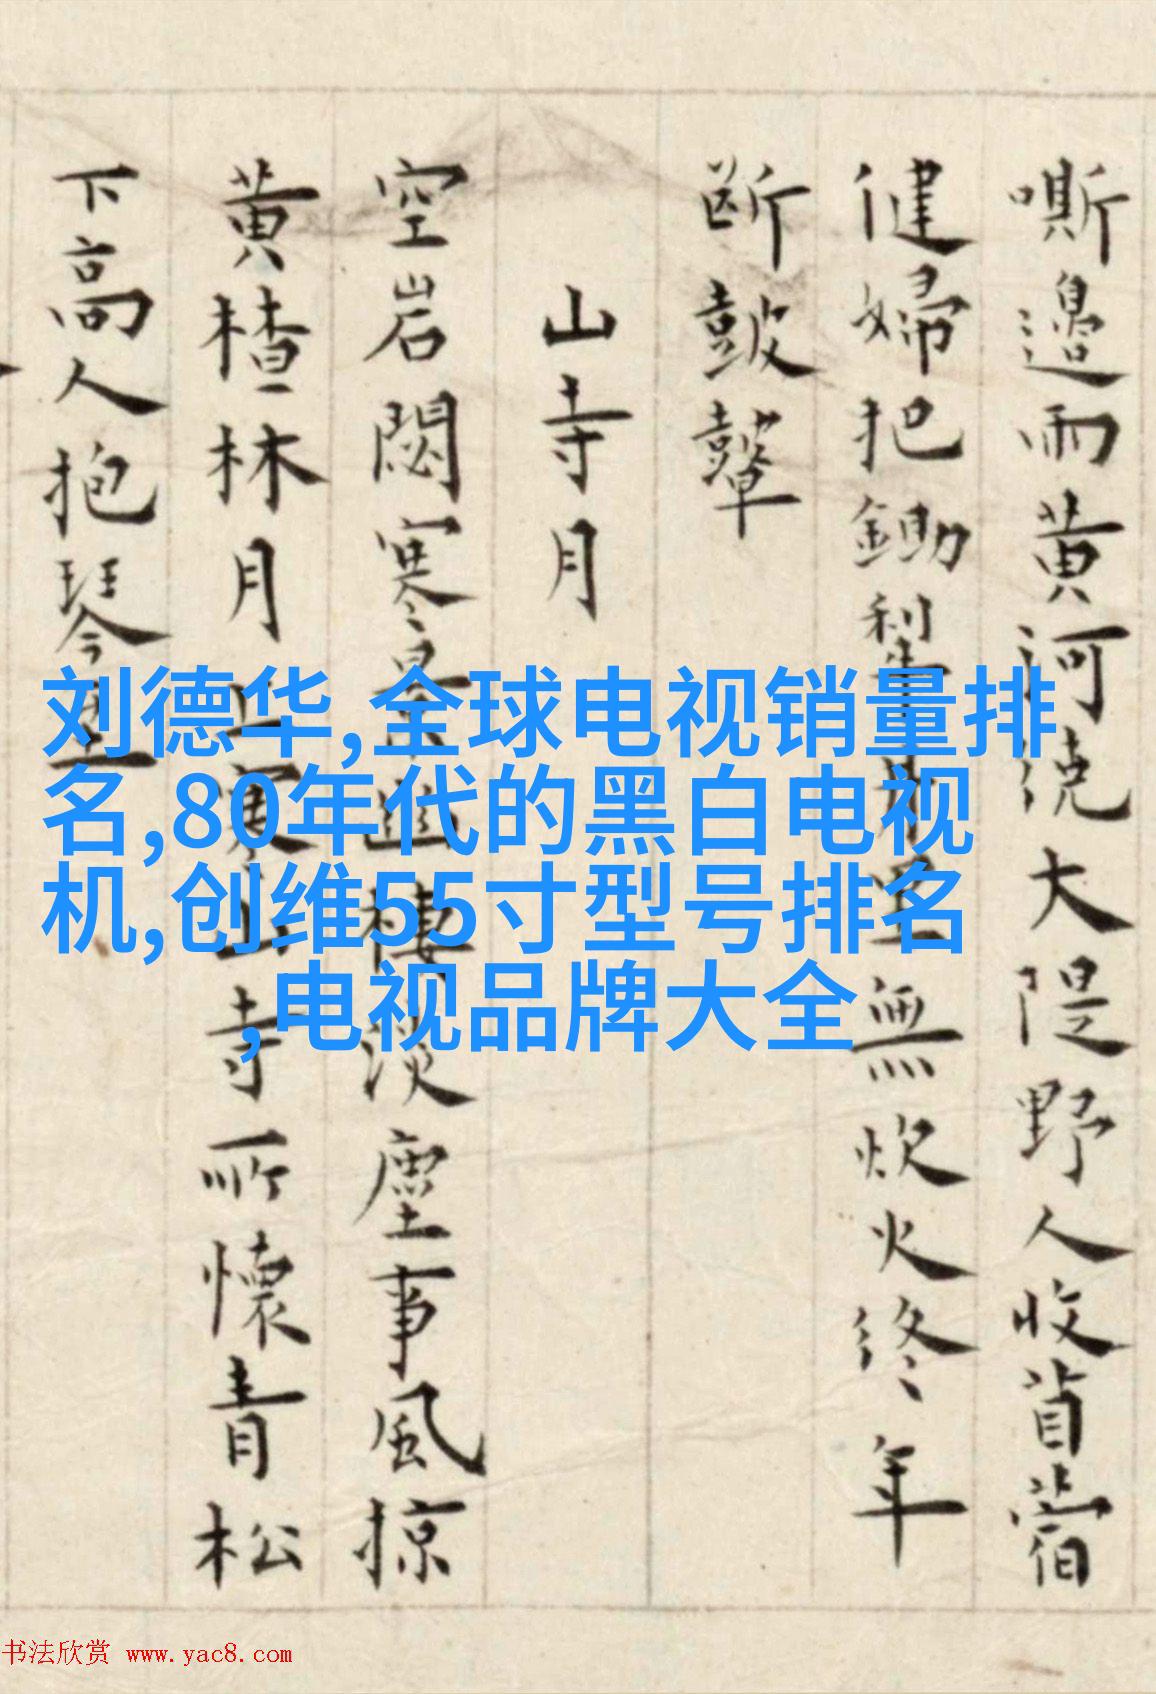 嘶邉雨黄河繞大隄野人收苜蓿
健婦把鋤犂里無炊火終年
断皷鼙
山寺月
空岩閟寒景幽棲淡塵事風掠
黄楂林月上東山寺所懷青松
下高人抱琴至
刘德华,全球电视销量排
名,80年代的黑白电视
机,创维55寸型号排名
,电视品牌大全
书法欣赏 www.yac8.com